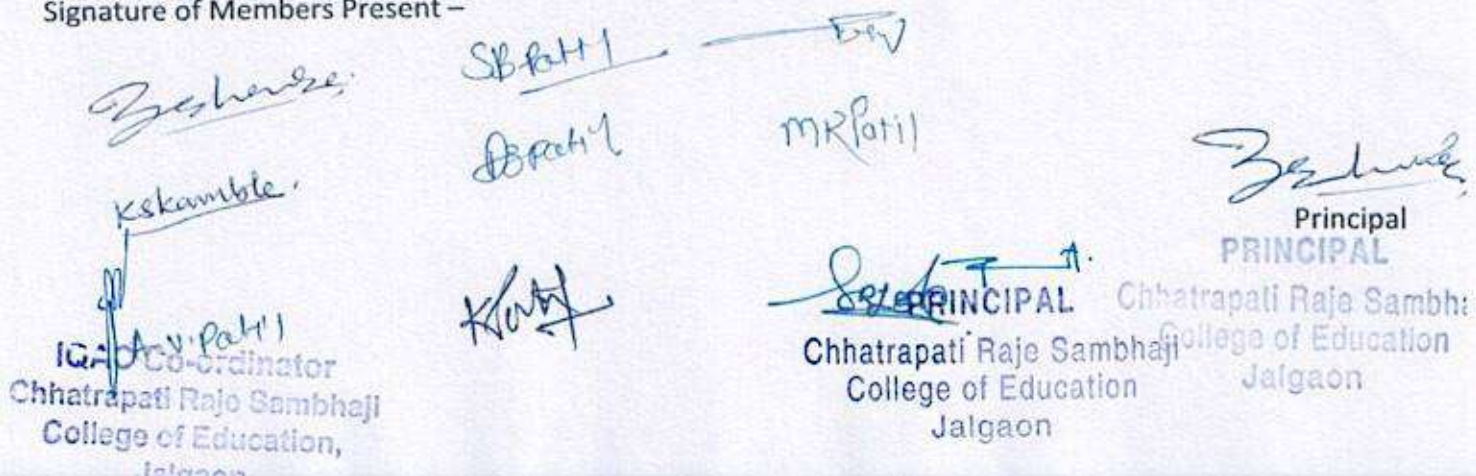 Signature of Members Present –
SBPatil
DBPatil
MRPatil
KsKamble.
A.V.Patil
Principal
PRINCIPAL
Chhatrapati Raje Sambha
College of Education
Jalgaon
PRINCIPAL
Chhatrapati Raje Sambhaji
College of Education
Jalgaon
Co-ordinator
Chhatrapati Raje Sambhaji
College of Education,
Jalgaon